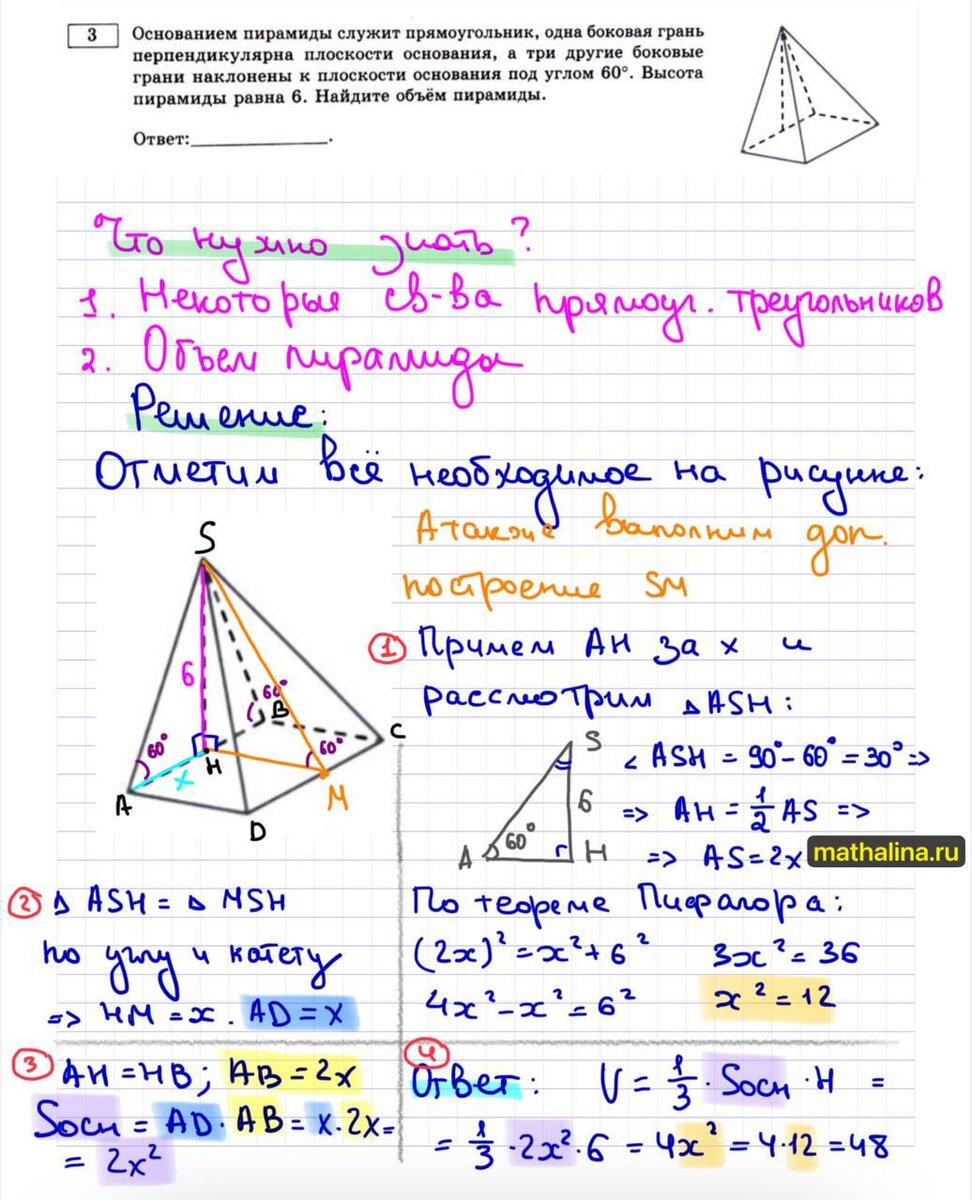 3
Основанием пирамиды служит прямоугольник, одна боковая грань
перпендикулярна плоскости основания, а три другие боковые
грани наклонены к плоскости основания под углом 60°. Высота
пирамиды равна 6. Найдите объём пирамиды.
Ответ:_______________.
Что нужно знать?
1. Некоторые св-ва прямоуг. треугольников
2. Объем пирамиды
Решение:
Отметим всё необходимое на рисунке:
А также выполним доп.
построение SM
S
6
60°
B
60°
H
60°
C
x
A
M
D
① Примем AH за x и
рассмотрим △ASH:
S
6
60°
A
H
∠ ASH = 90° - 60° = 30° =>
=> AH = 1/2 AS =>
=> AS = 2x
mathalina.ru
По теореме Пифагора:
(2x)² = x² + 6²
3x² = 36
4x² - x² = 6²
x² = 12
② △ ASH = △ MSH
по углу и катету
=> HM = x. AD = x
③ AH = HB; AB = 2x
Sосн = AD · AB = x · 2x =
= 2x²
④
Ответ: V = 1/3 · Sосн · H =
= 1/3 · 2x² · 6 = 4x² = 4 · 12 = 48